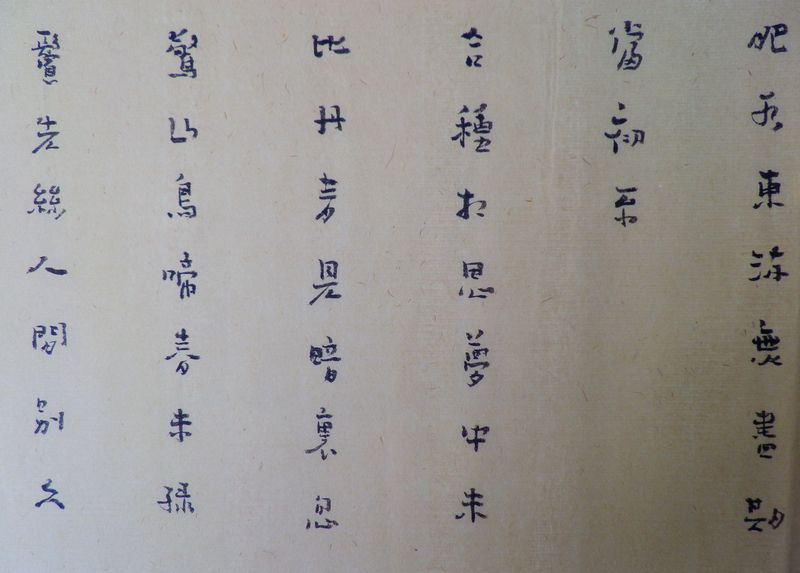 肥水東流無盡期
當初不
合種相思夢中未
比丹青見暗裏忽
驚山鳥啼春未綠
鬢先絲人間別久